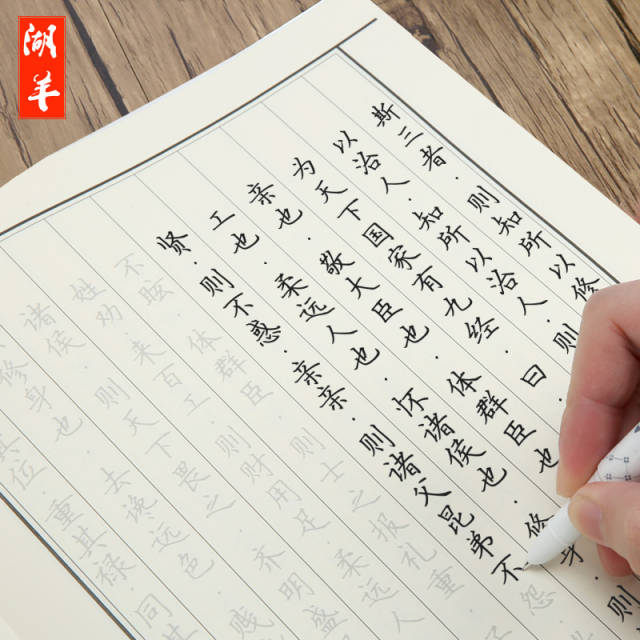 湖羊
斯三者·则知所以修
以治人·知所以治人·则
为天下国家有九经·曰·修身·则
亲也·敬大臣也·体群臣也·
工也·柔远人也·怀诸侯也·修身
贤·则不惑·亲亲·则诸父昆弟不怨
不眩·体群臣·则士之报礼重
姓劝·来百工·则财用足·柔远人
诸侯·则天下畏之·齐明盛
修身也·去谗远色·贱
其位·重其禄·同其